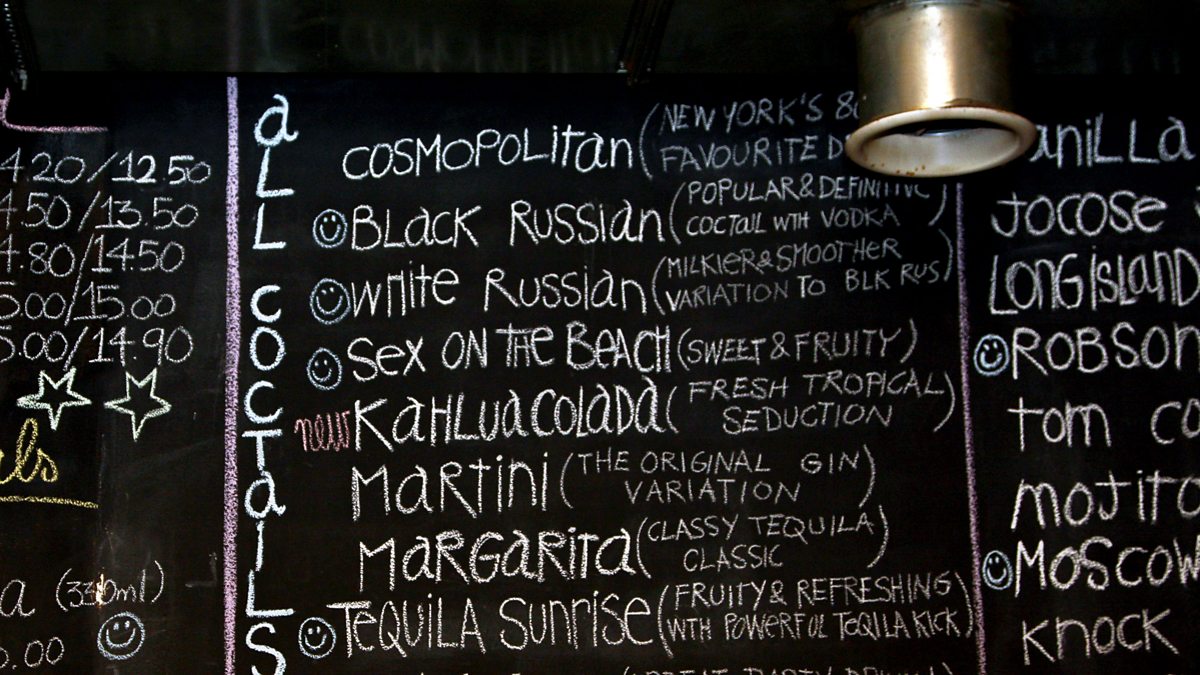 4.20/12.50
4.50/13.50
4.80/14.50
5.00/15.00
5.00/14.90
(330ml)
.00
aLL COCTaILS
COSMOPOLitan (NEW YORK'S
FAVOURITE
BLACK RUSSian (POPULAR & DEFINITIVE
COCTAIL WITH VODKA)
WHite RUSSian (MILKIER & SMOOTHER
VARIATION TO BLK RUS)
Sex ON THE BEACH (SWEET & FRUITY)
new KaHLUaCOLADa (FRESH TROPICAL
SEDUCTION)
MARtini (THE ORIGINAL GIN
VARIATION)
MARGARita (CLASSY TEQUILA
CLASSIC)
TEQUILA SUNRISE (FRUITY & REFRESHING
WTH POWERFUL TEQILA KICK)
JOCOSE
LONG ISLAND
ROBSON
tom
MOJITO
MOSCOW
KNOCK